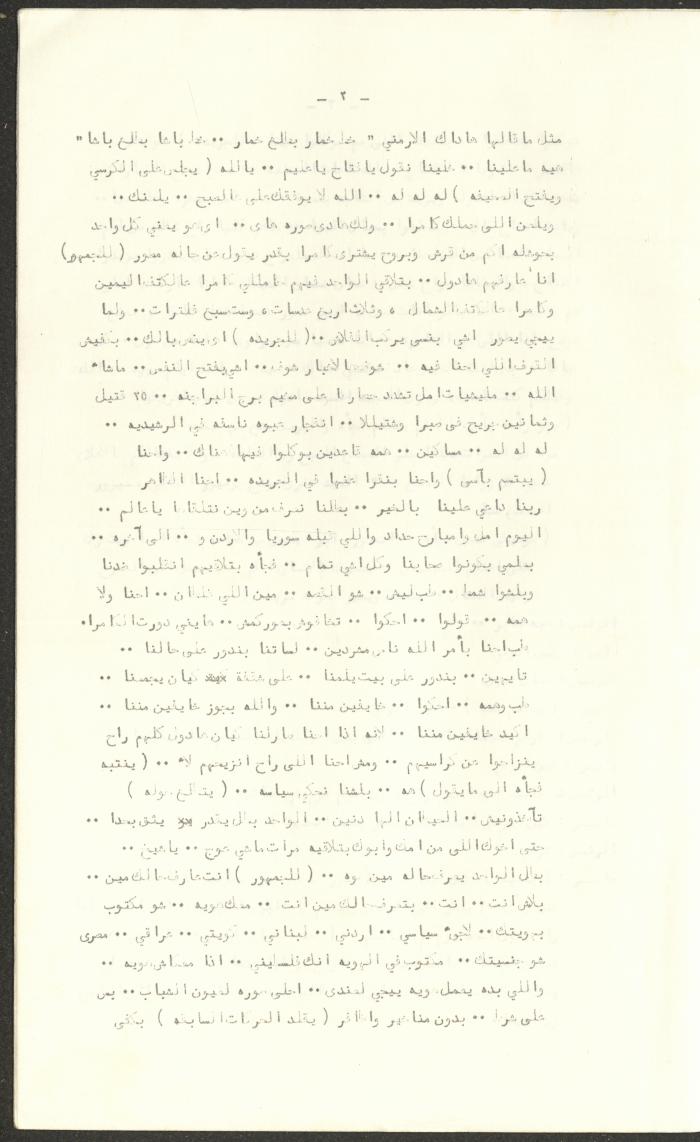 - ٢ -
مثل ما قالها هاداك الارمني " حط حمار بطلع حمار .. حط باشا بطلع باشا "
هيه ما علينا .. علينا نقول يا فتاح يا عليم .. يا الله ( يجلس على الكرسي
ويفتح الصحيفه ) له له له .. الله لا يوفقك على هالصبح .. يلعنك ..
ويلعن اللي حملك كامرا .. ولك هادي صوره هاي .. اي هو يعني كل واحد
بحوشله اكم من قرش وبروح يشتري كامرا بقدر يقول عن حاله مصور ( للجمهور )
انا عارفهم هادول .. بتلاقي الواحد فيهم حامللي كامرا عالكتف اليمين
وكامرا عالكتف الشمال ، وثلاث اربع عدسات، وست سبع فلترات .. ولما
ييجي يصور اشي بنسى يركب الفلاش ..( للجريده ) اي ينعن بالك .. بكفيش
القرف اللي احنا فيه .. شوف هالاخبار شوف .. اشي بفتح النفس .. ماشاء
الله .. مليشيات امل تشدد حصارها على مخيم برج البراجنه .. ٢٥ قتيل
وثمانين جريح في صبرا وشتيلا .. انفجار عبوه ناسفه في الرشيديه ..
له له له .. مساكين .. همه قاعدين بوكلوا فيها هناك .. واحنا
( يبتسم بآسى ) واحنا بنقرا عنها في الجريده .. احنا الظاهر
ربنا داعي علينا بالخير .. بطلنا نعرف من وين نتلقاها يا عالم ..
اليوم امل وامبارح حداد واللي قبله سوريا والاردن و .. الى آخره ..
بطلعي بكونوا صحابنا وكل اشي تمام .. فجأه بتلاقيهم انقلبوا ضدنا
وبلشوا شمط .. طب ليش .. شو القصه .. مين اللي غلطان .. احنا ولا
همه .. قولوا .. احكوا .. تخافوش بصوركمش .. هايني دورت الكامرا.
طب احنا بأمر الله ناس مشردين .. لساتنا بندور على حالنا ..
تايهين .. بندور على بيت يلمنا .. على شقفة كيان يجمعنا ..
طب وهمه .. احكوا .. خايفين مننا .. والله بجوز خايفين مننا ..
اكيد خايفين مننا .. لانه اذا احنا صارلنا كيان هادول كلهم راح
ينزاحوا عن كراسيهم .. ومش احنا اللي راح انزيحهم لأ .. ( ينتبه
فجأه الى ما يقول ) هه .. بلشنا نحكي سياسه .. ( يتطلع حوله )
تآخذونيش .. الحيطان الها دنين .. الواحد بطل يقدر يثق بحدا ..
حتى اخوك اللي من امك وابوك بتلاقيه مرات ماشي عوج .. يا شيخ ..
بطل الواحد يعرف حاله مين هوه .. ( للجمهور ) انت عارف حالك مين ..
بلاش انت .. انت .. بتعرف حالك مين انت .. معك هويه .. شو مكتوب
بهويتك .. لاجئ سياسي .. اردني .. لبناني .. كويتي .. عراقي .. مصري
شو جنسيتك .. مكتوب في الهويه انك فلسطيني .. اذا معكاش هويه ..
واللي بده يعمل هويه ييجي لعندي .. احلى صوره لعيون الشباب .. بس
على شرط .. بدون مناخير واظافر ( يقلد الحركات السابقه ) بكفي